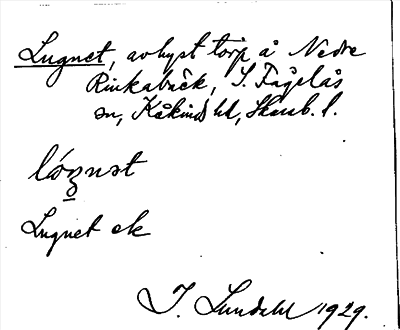 Lugnet, avhyst torp å Nedre
Rinkabäck, S. Fågelås
sn, Kåkinds hd, Skarab. l.
lóꝫnət
Lugnet ek
I. Lundahl 1929.